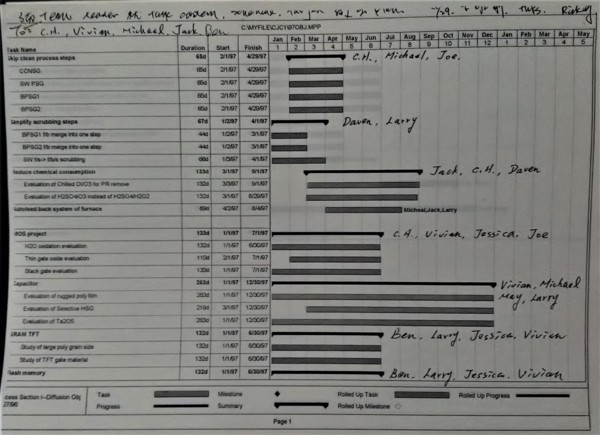 To: C.H., Vivian, Michael, Jack, Ben
C:\MYFILE\CJC1\97OBJ.MPP
Task Name Duration Start Finish Jan Feb Mar Apr May Jun Jul Aug Sep Oct Nov Dec Jan Feb Mar Apr May
1 2 3 4 5 6 7 8 9 10 11 12 1 2 3 4 5
Skip clean process steps 65d 2/1/97 4/29/97 C.H., Michael, Joe.
CONSG 65d 2/1/97 4/29/97
SW PSG 65d 2/1/97 4/29/97
BPSG1 65d 2/1/97 4/29/97
BPSG2 65d 2/1/97 4/29/97
Simplify scrubbing steps 67d 1/2/97 4/1/97 Daven, Larry
BPSG1 f/b merge into one step 44d 1/2/97 3/1/97
BPSG2 f/b merge into one step 44d 1/2/97 3/1/97
scrubbing 4/1/97
Reduce chemical consumption 133d 3/1/97 9/1/97 Jack, C.H., Daven
Evaluation of Chilled DI/O3 for PR remove 132d 3/3/97 9/1/97
Evaluation of H2SO4/O3 instead of H2SO4/H2O2 130d 3/1/97 8/29/97
back system of furnace 8/4/97 Micheal,Jack,Larry
MOS project 133d 1/1/97 7/1/97 C.H., Vivian, Jessica, Joe
H2O oxidation evaluation 132d 1/1/97 6/30/97
Thin gate oxide evaluation 110d 2/1/97 7/1/97
Stack gate evaluation 133d 1/1/97 7/1/97
Capacitor 263d 1/1/97 12/30/97 Vivian, Michael
Evaluation of rugged poly film 263d 1/1/97 12/30/97 May, Larry
Evaluation of Selective HSG 219d 3/1/97 12/30/97
Evaluation of Ta2O5 263d 1/1/97 12/30/97
SRAM TFT 132d 1/1/97 6/30/97 Ben, Larry, Jessica, Vivian
Study of large poly grain size 132d 1/1/97 6/30/97
Study of TFT gate material 132d 1/1/97 6/30/97
Flash memory 132d 1/1/97 6/30/97 Ben, Larry, Jessica, Vivian
cess Section I--Diffusion Obj Task Milestone Rolled Up Task Rolled Up Progress
27/96 Progress Summary Rolled Up Milestone
Page 1